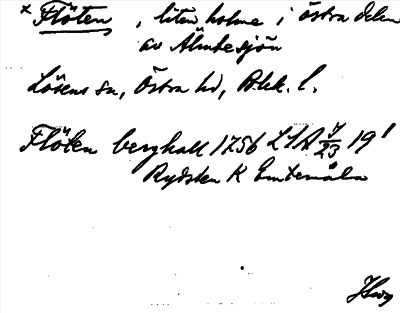 x Flöten, liten holme i östra delen
av Älmtesjön
Lösens sn, Östra hd, Blek. l.
Flöten berghall 1756 LSA 7/23 19¹
Rydsten K Emtemåla